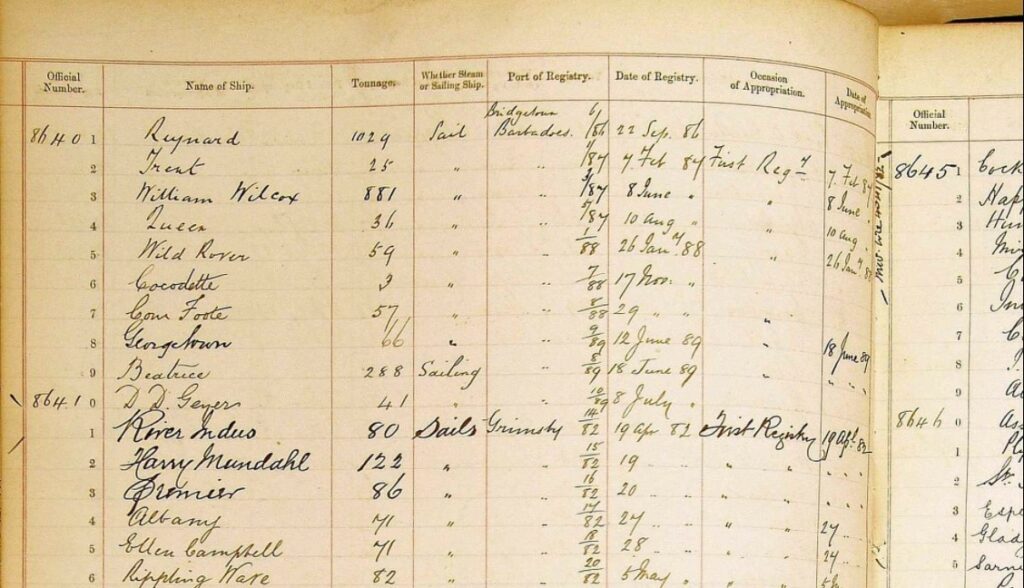 Official Number. Name of Ship. Tonnage. Whether Steam or Sailing Ship. Port of Registry. Date of Registry. Occasion of Appropriation. Date of Appropriation Official Number.
86401 Reynard 1029 Sail Bridgetown Barbadoes. 6/86 22 Sep. 86
2 Trent 25 " " 1/87 7 Feb 87 First Regy 7 Feb 87 86451 Cock
3 William Wilcox 881 " " 3/87 8 June " " 8 June 2
4 Queen 36 " " 5/87 10 Aug " " 10 Aug 3
5 Wild Rover 59 " " 1/88 26 Jany 88 26 Jany 4
6 Cocodette 3 " " 7/88 17 Nov. " 5
7 Com Foote 57 " " 8/88 29 " " " 6
8 Georgetown 66 " " 9/89 12 June 89 " 18 June 89 7
9 Beatrice 288 Sailing " 8/89 18 June 89 " " " " 8
86410 D. D. Geyer 41 " " 10/89 8 July " 9
1 River Indus 80 Sails Grimsby 14/82 19 Apr 82 First Registry 19 Apl 82 86460
2 Harry Mundahl 122 " " 15/82 19 " " " " " " 1
3 Premier 86 " " 16/82 20 " " " " " " 2
4 Albany 71 " " 17/82 27 " " " " 27 " 3 Espe
5 Ellen Campbell 71 " " 18/82 28 " " " " 4 Glad
6 Rippling Wave 82 " " 20/82 5 May " " " 5